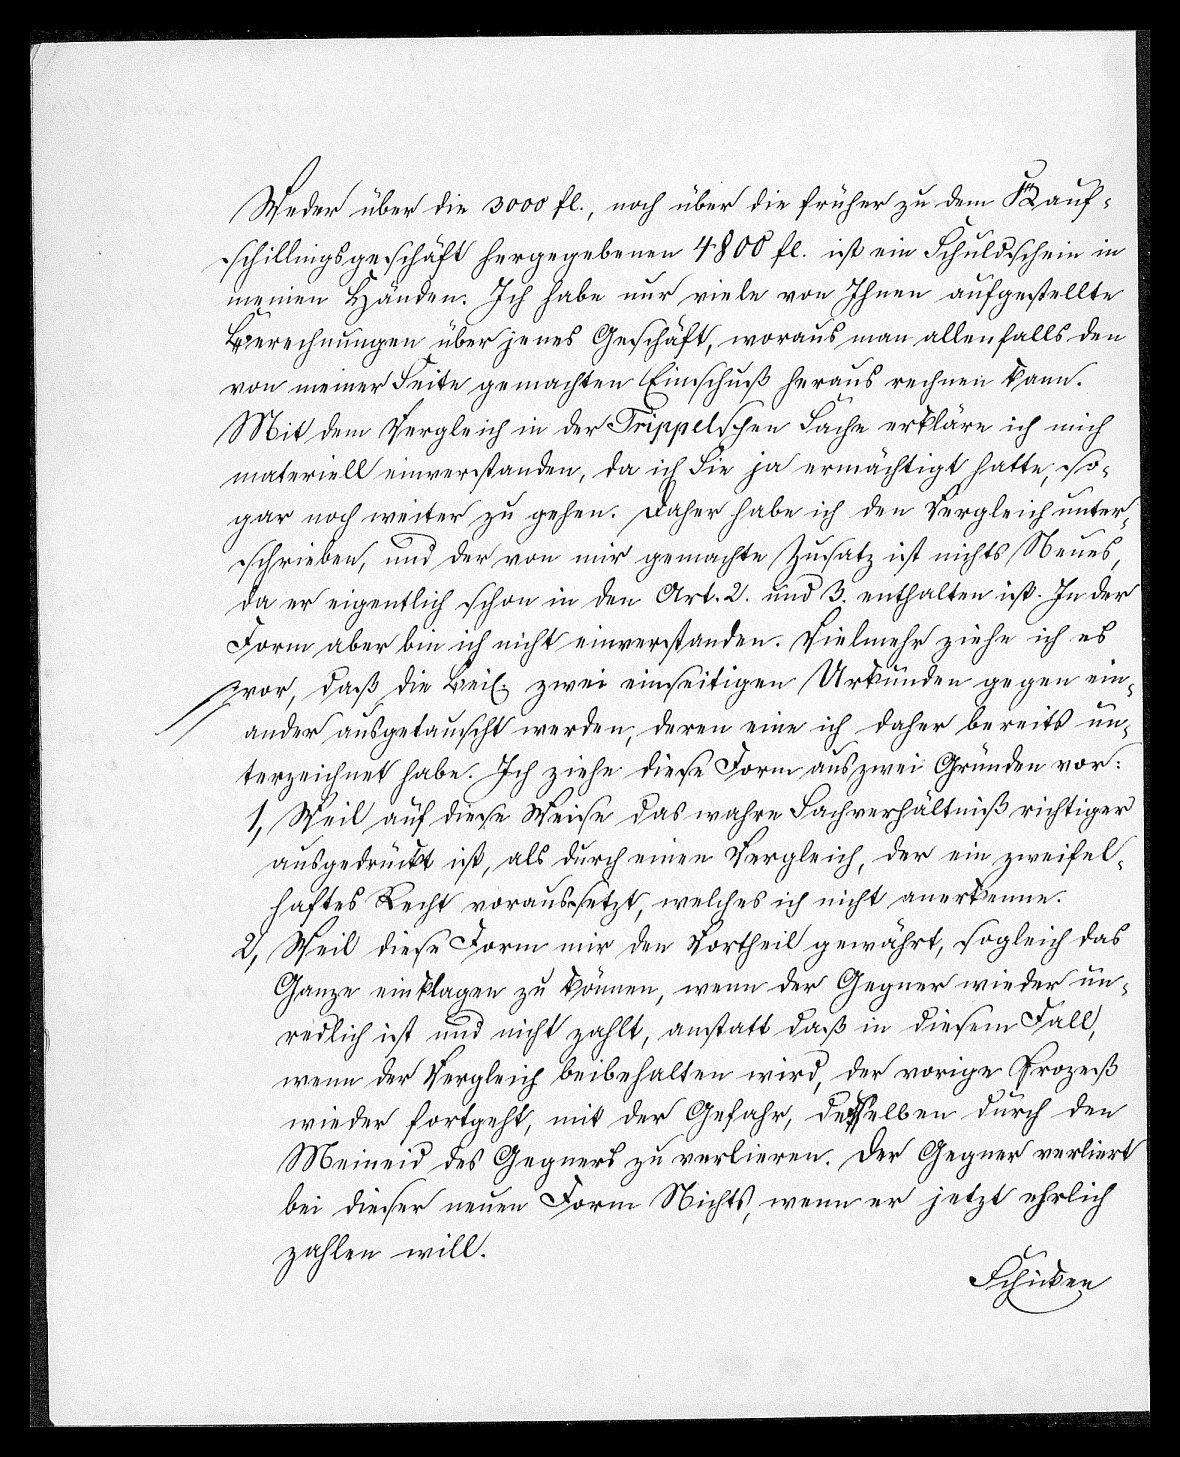 Weder über die 3000 fl., noch über die früher zu dem Kauf-
schillingsgeschäft hergegebenen 4800 fl. ist ein Schuldschein in
meinen Händen. Ich habe nur viele von Ihnen aufgestellte
Berechnungen über jenes Geschäft, woraus man allenfalls den
von meiner Seite gemachten Einschuß heraus rechnen kann.
Mit dem Vergleich in der Trippelschen Sache erkläre ich mich
materiell einverstanden, da ich Sie ja ermächtigt hatte, so-
gar noch weiter zu gehen. Daher habe ich den Vergleich unter-
schrieben, und der von mir gemachte Zusatz ist nichts Neues,
da er eigentlich schon in den Art. 2. und 3. enthalten ist. In der
Form aber bin ich nicht einverstanden. Vielmehr ziehe ich es
vor, daß die beil. zwei einseitigen Urkunden gegen ein-
ander ausgetauscht werden, deren eine ich daher bereits un-
terzeichnet habe. Ich ziehe diese Form aus zwei Gründen vor:
1, Weil auf diese Weise das wahre Sachverhältniß richtiger
ausgedrückt ist, als durch einen Vergleich, der ein zweifel-
haftes Recht voraussetzt, welches ich nicht anerkenne.
2, Weil diese Form mir den Vortheil gewährt, sogleich das
Ganze einklagen zu können, wenn der Gegner wieder un-
redlich ist und nicht zahlt, anstatt daß in diesem Fall,
wenn der Vergleich beibehalten wird, der vorige Prozeß
wieder fortgeht, mit der Gefahr, desselben durch den
Meineid des Gegners zu verlieren. Der Gegner verliert
bei dieser neuen Form Nichts, wenn er jetzt ehrlich
zahlen will.